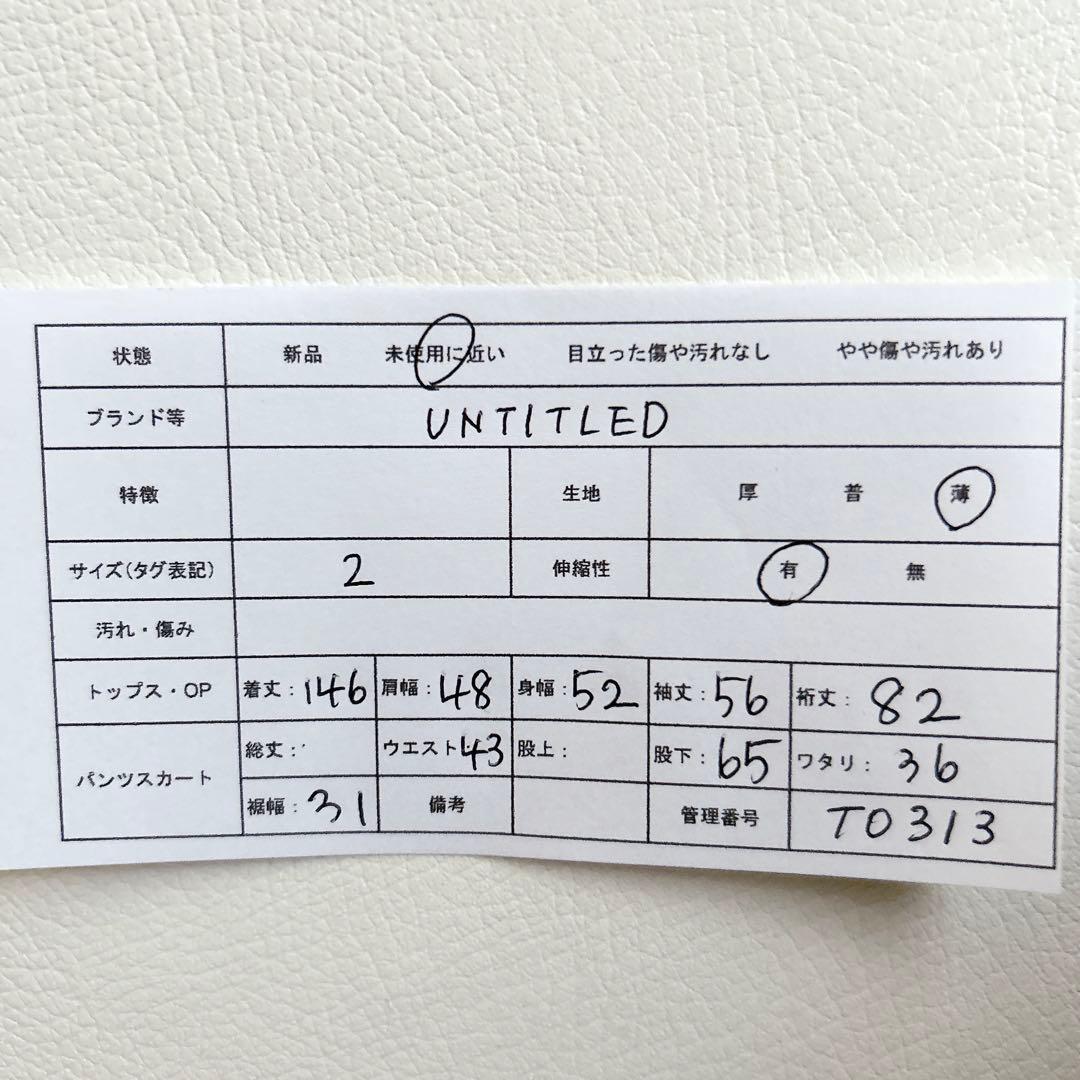 状態 新品 未使用に近い 目立った傷や汚れなし やや傷や汚れあり
ブランド等 UNTITLED
特徴 生地 厚 普 薄
サイズ(タグ表記) 2 伸縮性 有 無
汚れ・傷み
トップス・OP 着丈:146 肩幅:48 身幅:52 袖丈:56 裄丈:82
パンツスカート 総丈: ウエスト43 股上: 股下:65 ワタリ:36
裾幅:31 備考 管理番号 T0313